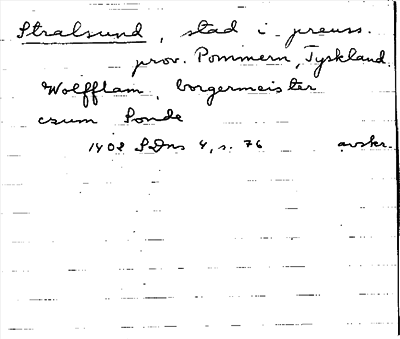 Stralsund, stad i preuss.
prov. Pommern, Tyskland.
Wolfflam, borgermeister
czum Sonde
1408 SDns 4, s. 76 avskr.